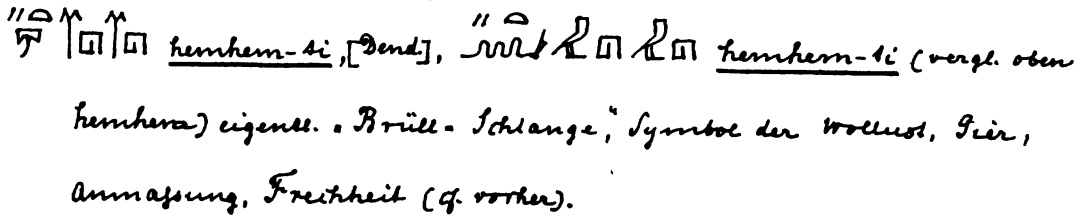 hemhem-ti, [Dend.], hemhem-ti (vergl. oben
hemhem) eigentl. „Brüll-Schlange", Symbol der Wollust, Gier,
Anmaſsung, Frechheit (cf. vorher).